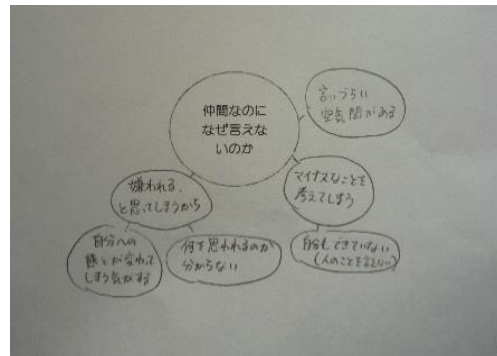 仲間なのに
なぜ言えな
いのか
言いづらい
空気間がある
嫌われる、
と思ってしまうから
マイナスなことを
考えてしまう
自分への
態とが変わって
しまう気がする
何を思われるのか
分からない
自分もできていない
(人のことを言えない)